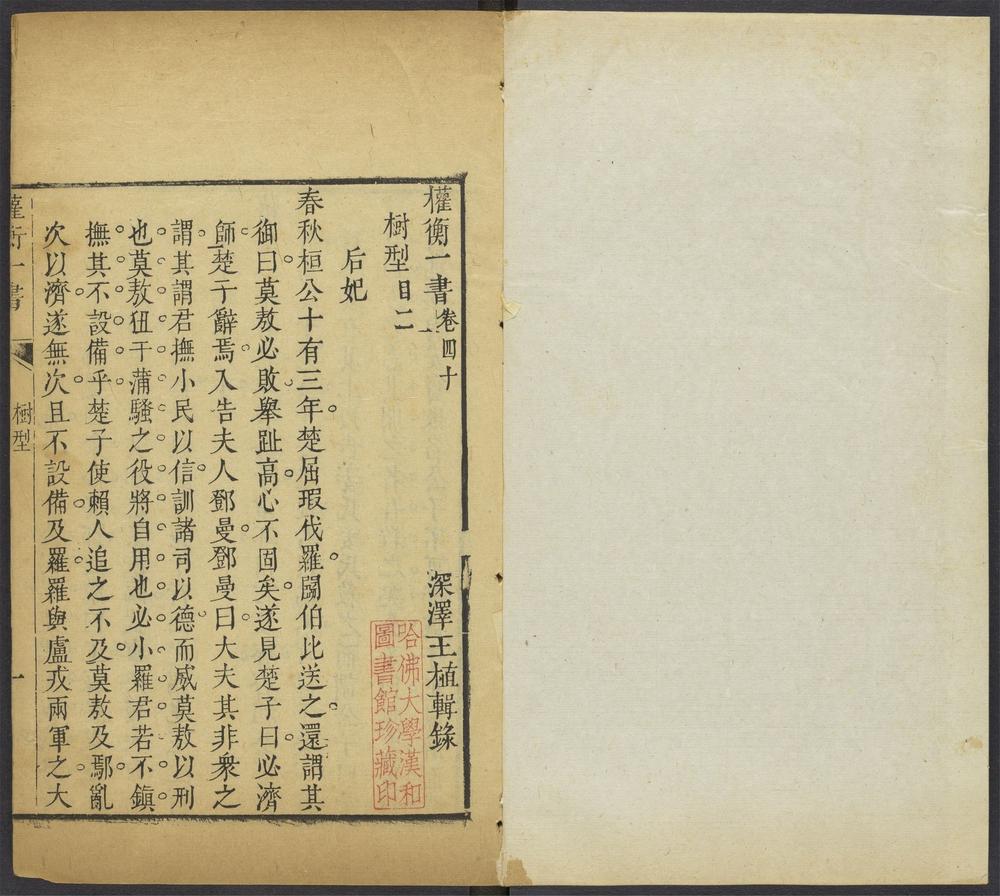 權衡一書卷四十
深澤王植輯錄
樹型目二
后妃
春秋桓公十有三年楚屈瑕伐羅鬬伯比送之還謂其
御曰莫敖必敗舉趾高心不固矣遂見楚子曰必濟
師楚子辭焉入告夫人鄧曼鄧曼曰大夫其非衆之
謂其謂君撫小民以信訓諸司以德而威莫敖以刑
也莫敖狃于蒲騷之役將自用也必小羅君若不鎮
撫其不設備乎楚子使賴人追之不及莫敖及鄢亂
次以濟遂無次且不設備及羅羅與盧戎兩軍之大
權衡一書
樹型
一
哈佛大學漢和
圖書館珍藏印